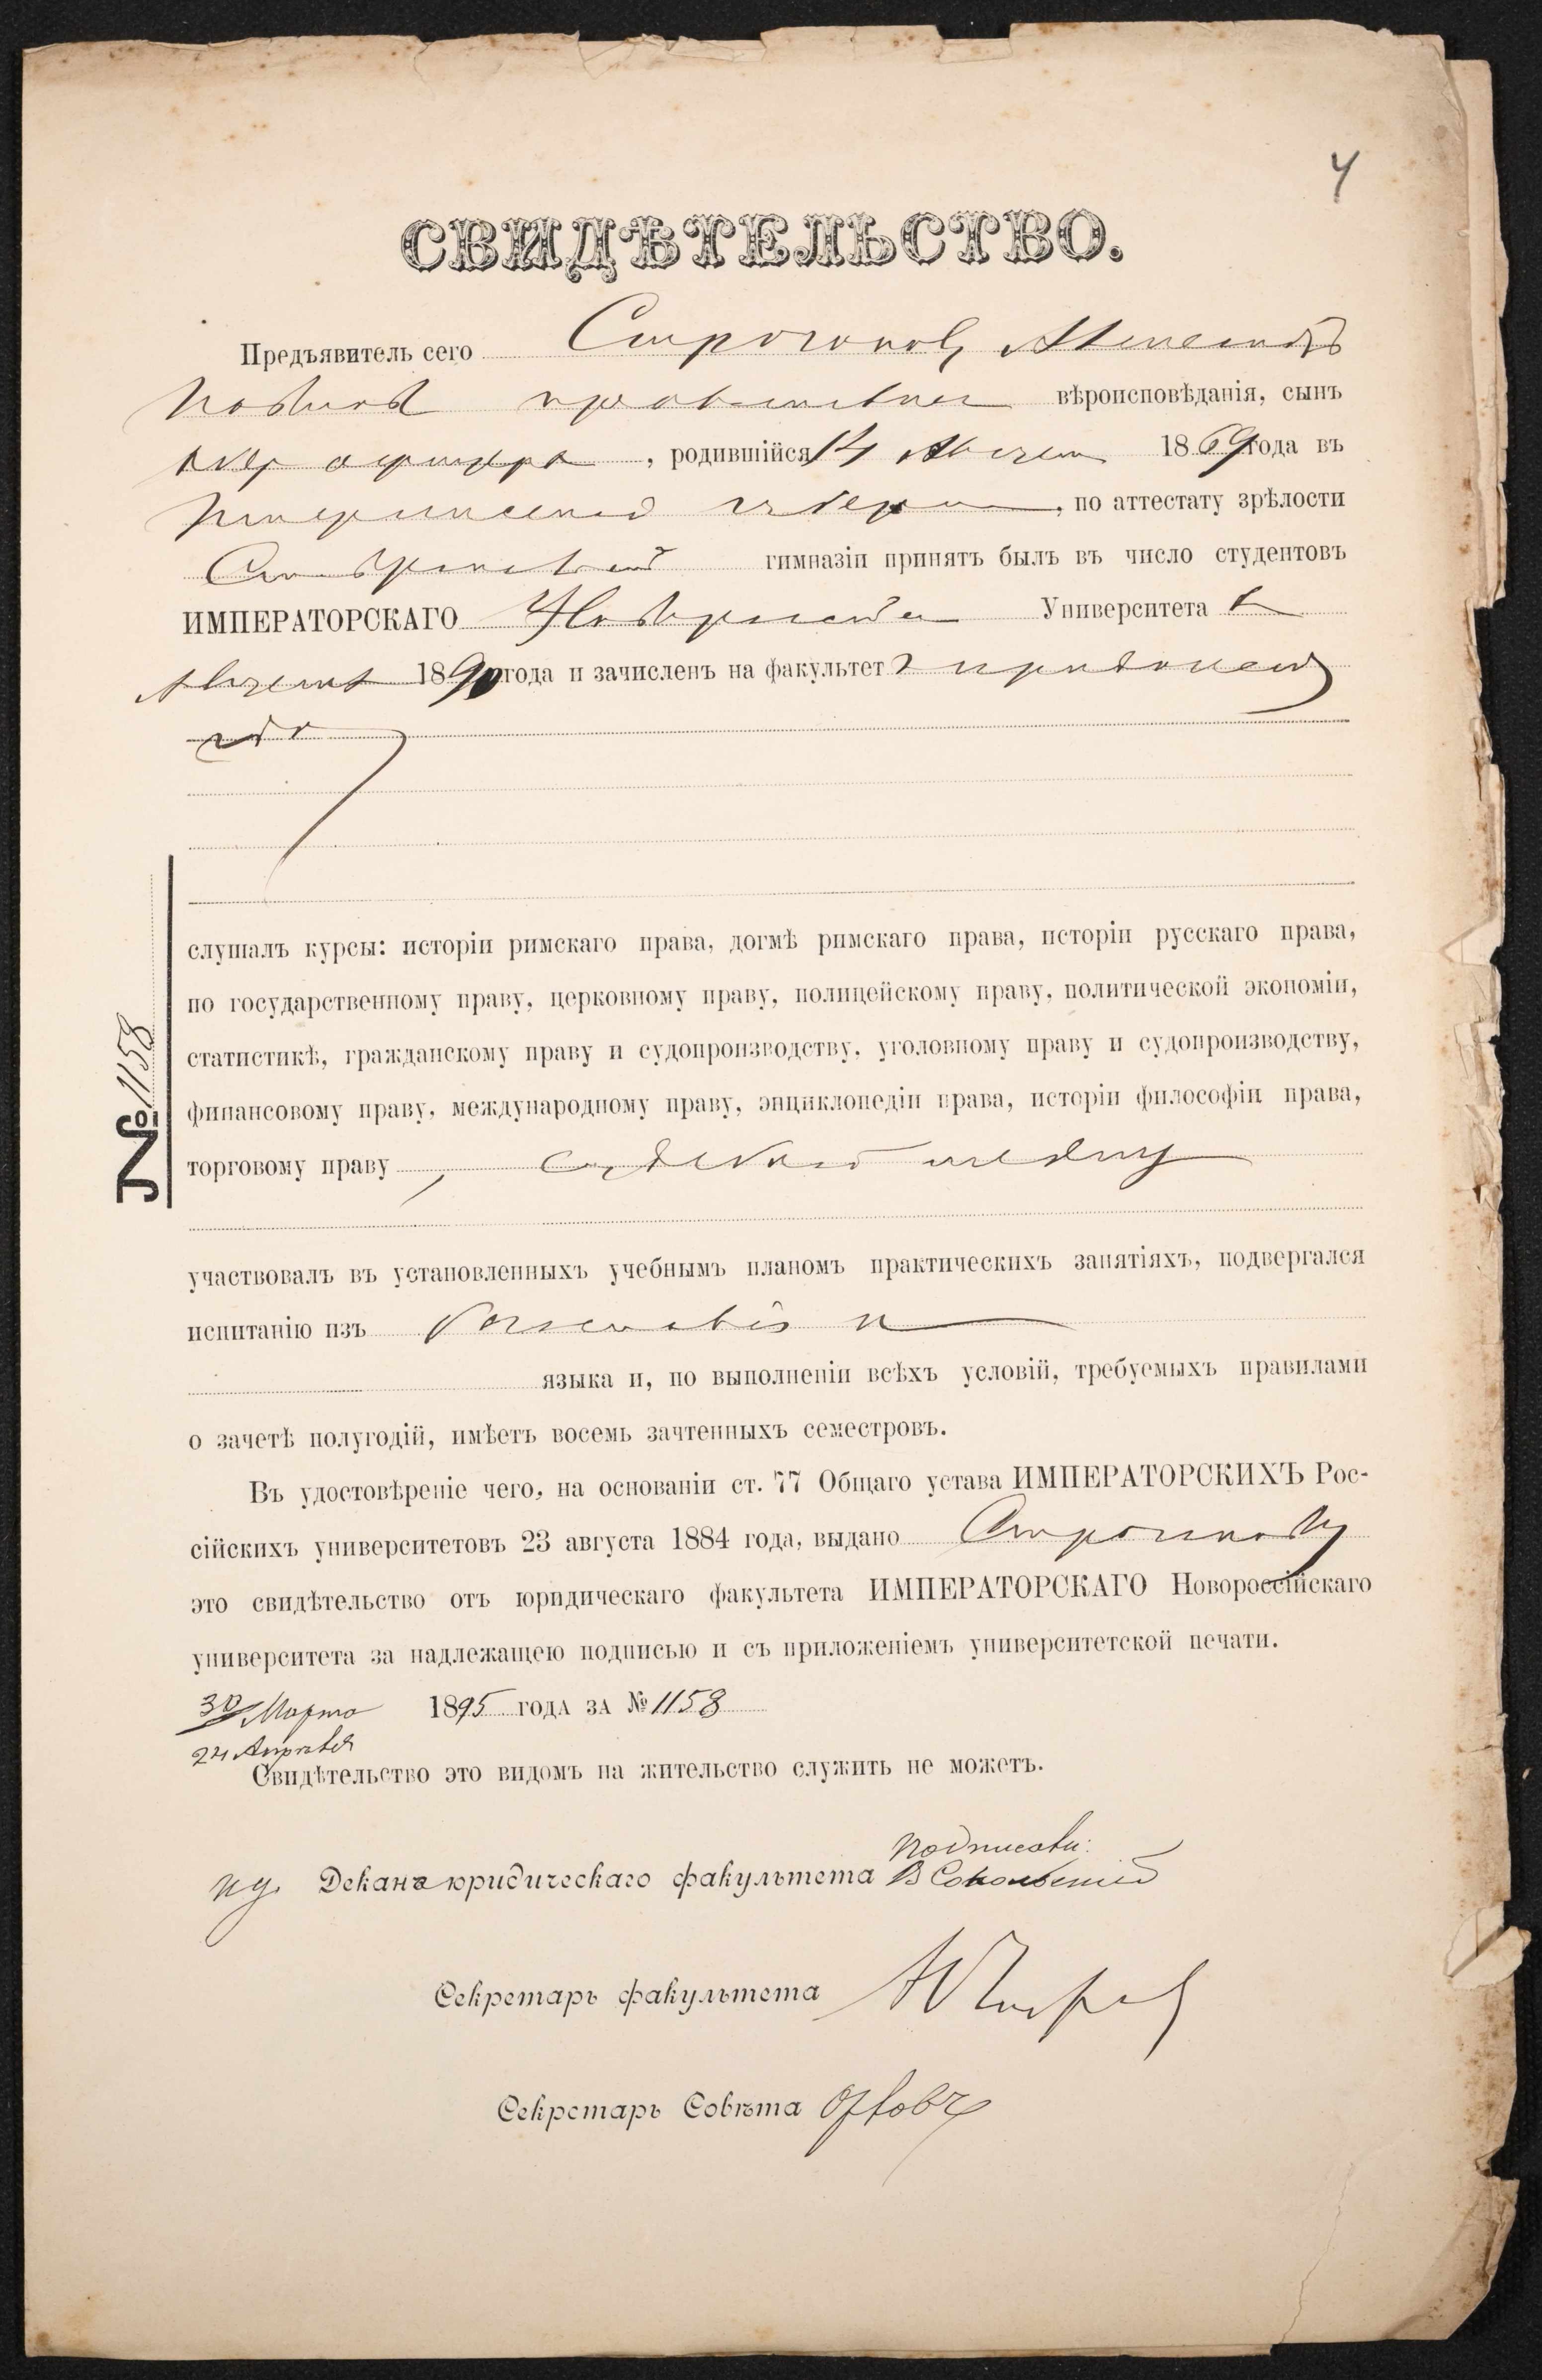 4
СВИДѢТЕЛЬСТВО.
Предъявитель сего Строгонов, Александръ
православнаго вѣроисповѣданія, сынъ
офицера, родившійся 14 Августа 1869 года въ
губерніи, по аттестату зрѣлости
Ставропольской гимназіи принятъ былъ въ число студентовъ
ИМПЕРАТОРСКАГО Новороссійскаго Университета въ
Августѣ 1890 года и зачисленъ на факультет
слушалъ курсы: исторіи римскаго права, догмѣ римскаго права, исторіи русскаго права,
по государственному праву, церковному праву, полицейскому праву, политической экономіи,
статистикѣ, гражданскому праву и судопроизводству, уголовному праву и судопроизводству,
финансовому праву, международному праву, энциклопедіи права, исторіи философіи права,
торговому праву, судебной медиц
№ 1158
участвовалъ въ установленныхъ учебнымъ планомъ практическихъ занятіяхъ, подвергался
испитанію изъ
языка и, по выполненіи всѣхъ условій, требуемыхъ правилами
о зачетѣ полугодій, имѣетъ восемь зачтенныхъ семестровъ.
Въ удостовѣреніе чего, на основаніи ст. 77 Общаго устава ИМПЕРАТОРСКИХЪ Рос-
сійскихъ университетовъ 23 августа 1884 года, выдано Строгонову
это свидѣтельство отъ юридическаго факультета ИМПЕРАТОРСКАГО Новороссійскаго
университета за надлежащею подписью и съ приложеніемъ университетской печати.
30 Марта 1895 года за № 1158
24 Апрѣля
Свидѣтельство это видомъ на жительство служить не можетъ.
Подписали:
ид. Декана юридическаго факультета В Сокольскій
Секретарь факультета
Секретарь Совѣта Орловъ